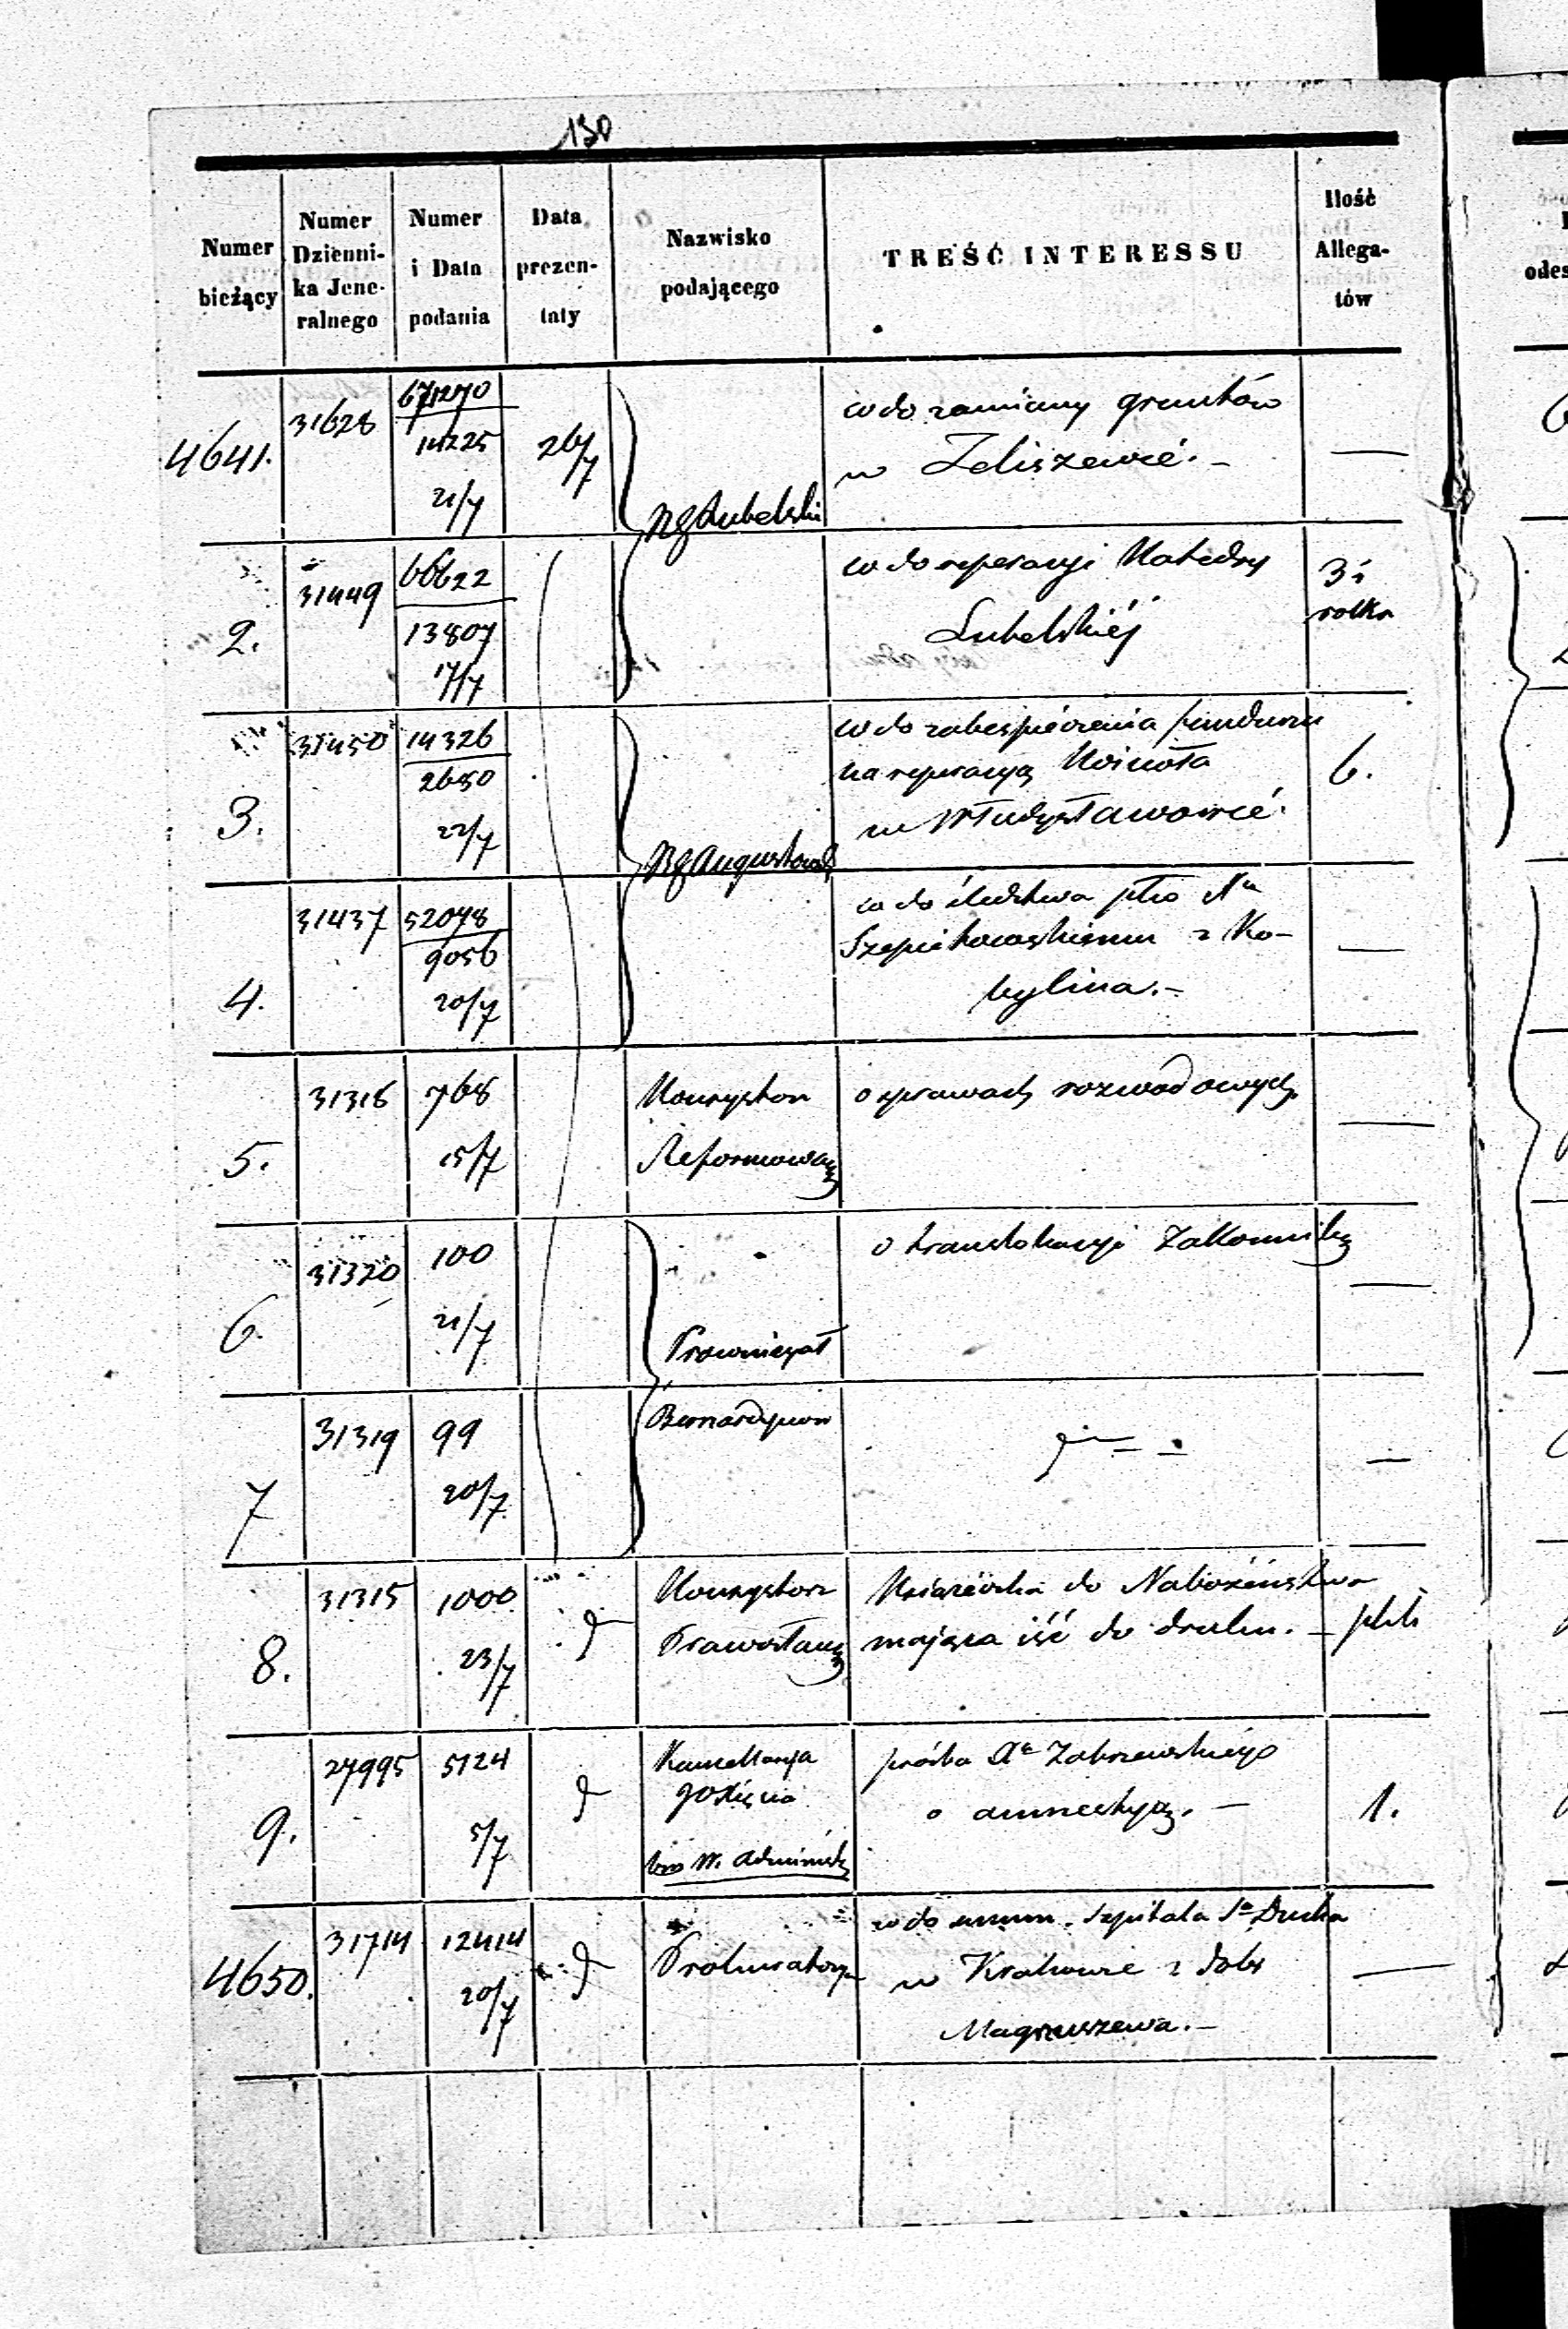 130
Numer bieżący
Numer Dzienni-
ka Jene-
ralnego
Numer i Data podania
Data prezen-
taty
Nazwisko podającego
TREŚĆ INTERESSU
Ilość Allega-
tów
4641.
31628
67270
14225
21/7
26/7
Rg Lubelski
co do zamiany gruntów
w Zeliszewie. –
—
2.
31449
66622
13807
17/7
co do reperacyi Katedry
Lubelskiéj
3 i
rolka
3.
31450
14326
2650
22/7
Rg Augustowsk
co do zabespieczenia funduszu
na reperacyą Kościoła
w Władysławowie.
6.
4.
31437
52078
9056
20/7
co do śledztwa ptko Xu
Szepietowskiemu z Ko-
bylina. –
—
5.
31316
768
15/7
Konsystorz
Reformowany
o sprawach rozwodowych.
—
6.
31320
100
21/7
Prowincyał
Bernardynów
o translokacyi Zakonnika
—
7
31319
99
20/7
—
8.
31315
1000
23/7
Konsystorz
Prawosławny
Książeczka do Nabożeństwa
mająca iść do druku. –
9.
27995
5124
5/7
Kancellarya
JO Xięcia
prośba Xa Zakrzewskiego
o amnestyą. –
1.
4650.
31714
12414
20/7
Prokuratorya
co do summ. szpitala Sgo Ducha
w Krakowie z dóbr
Magnuszewa. –
—